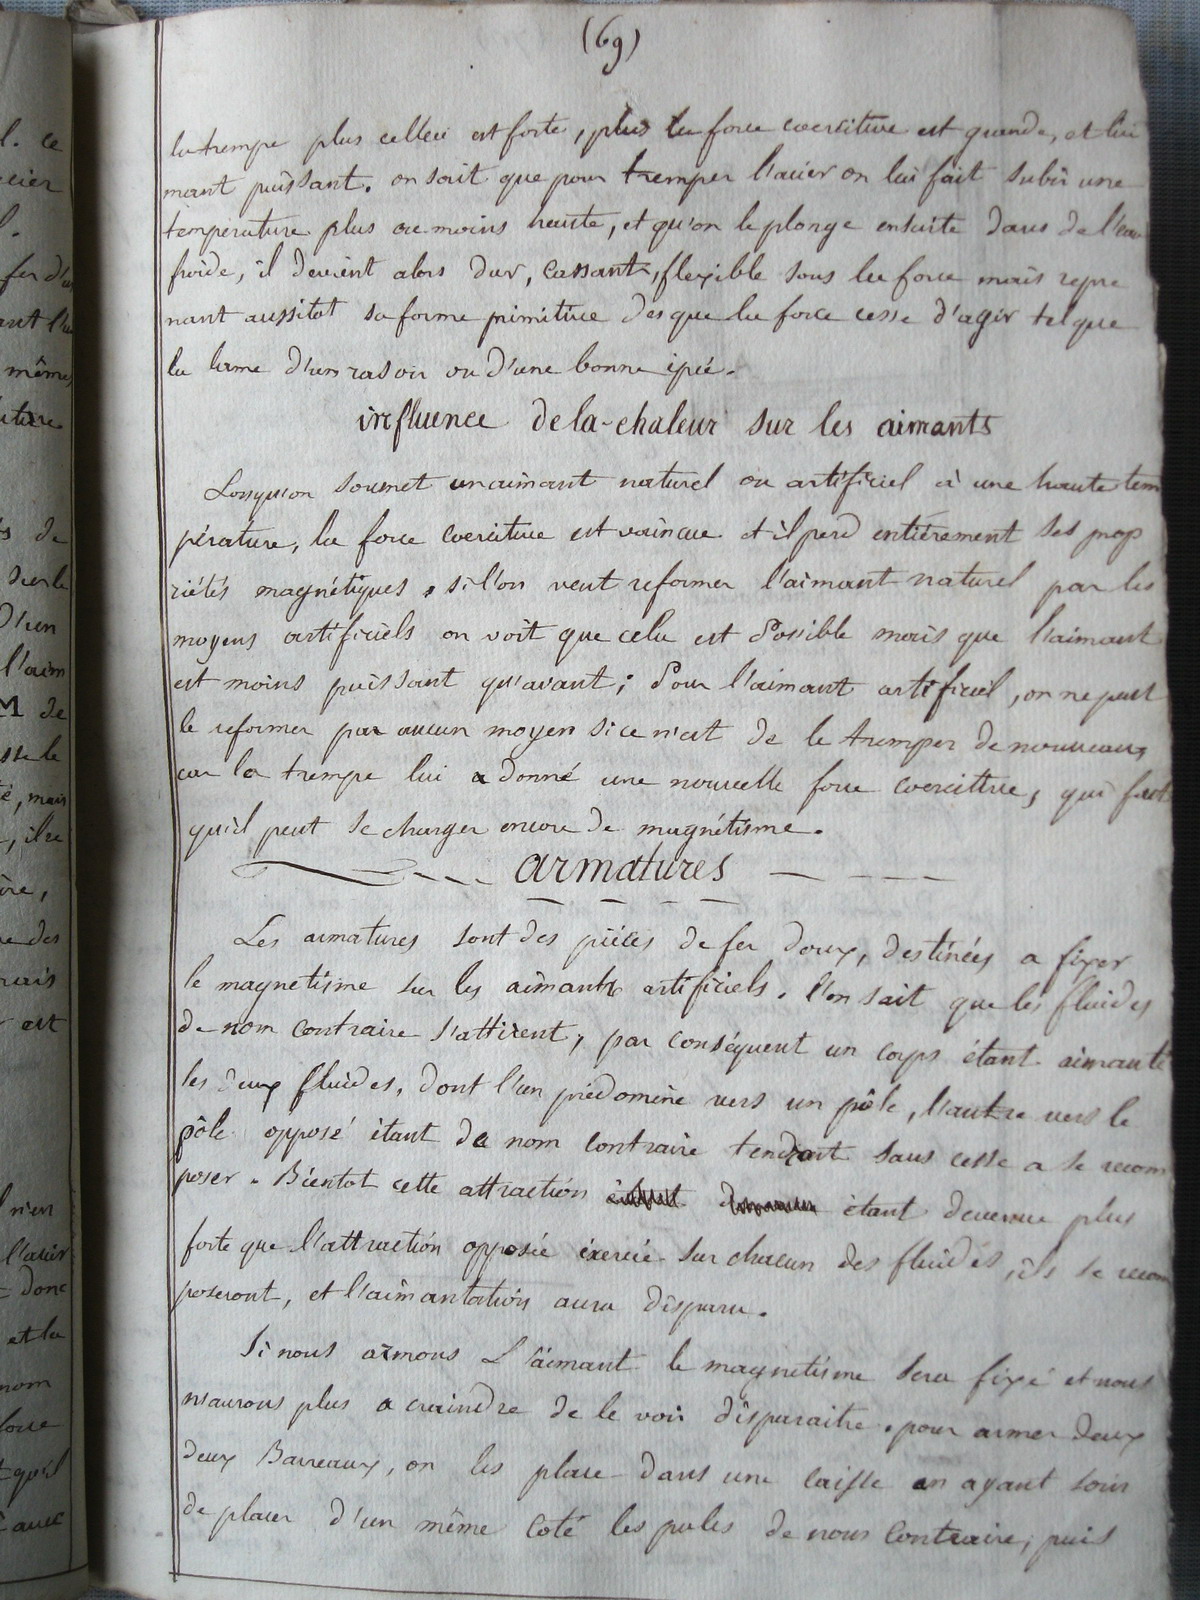 (69)
la trempe plus celleci est forte, plus la force coercitive est grande, et l'ai
mant puissant. on sait que pour tremper l'acier on lui fait subir une
température plus ou moins haute, et qu'on le plonge ensuite dans de l'eau
froide, il devient alors dur, cassant, flexible sous la force mais repre
nant aussitot sa forme primitive des que la force cesse d'agir tel que
la lame d'un rasoir ou d'une bonne épée.
influence de la-chaleur sur les aimants
Lorsqu'on soumet un aimant naturel ou artificiel à une haute tem
pérature, la force coercitive est vaincue et il perd entièrement ses prop
riétés magnétiques, si l'on veut reformer l'aimant naturel par les
moyens artificiels on voit que cela est Possible mais que l'aimant
est moins puissant qu'avant; Pour l'aimant artificiel, on ne peut
le reformer par aucun moyen si ce n'est de le tremper de nouveau,
car la trempe lui a donné une nouvelle force coercitive, qui fait
qu'il peut se charger encore de magnétisme.
armatures
Les armatures sont des pièces de fer doux, destinées a fixer
le magnetisme sur les aimants artificiels. l'on sait que les fluides
de nom contraire s'attirent, par conséquent un corps étant aimanté
les deux fluides, dont l'un prédomine vers un pôle, l'autre vers le
pôle opposé étant de nom contraire tendront sans cesse a se recom
poser. Bientot cette attraction étant devenue plus
forte que l'attraction opposée exercée sur chacun des fluides, ils se recom
poseront, et l'aimantation aura disparu.
Si nous armons L'aimant le magnetisme sera fixé et nous
n'aurons plus a craindre de le voir disparaitre. pour armer deux
deux Barreaux, on les place dans une caisse en ayant soin
de placer d'un même coté les poles de nom Contraire, puis